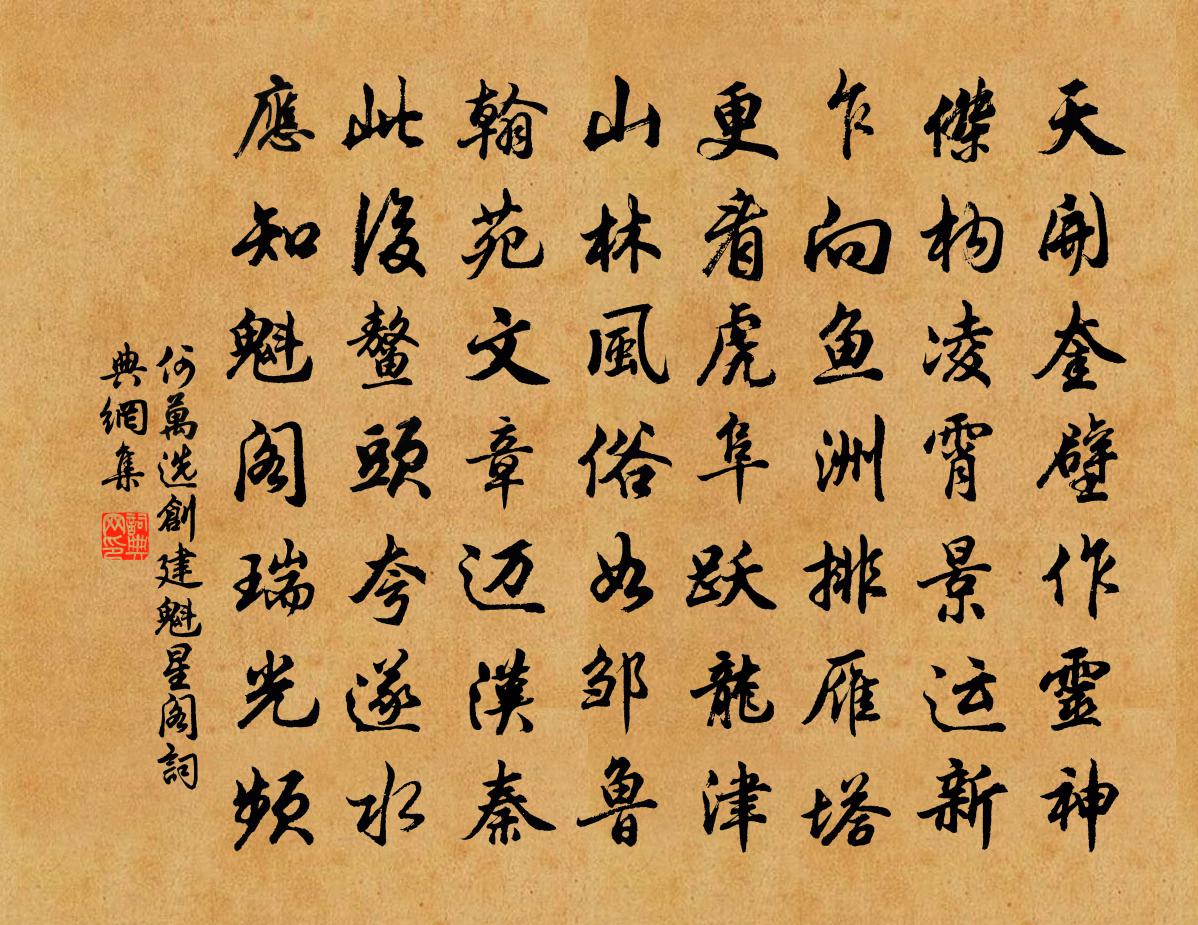 天開奎壁作靈神
傑构凌霄景运新
乍向鱼洲排雁塔
更看虎阜跃龍津
山林風俗如邹魯
翰苑文章迈漢秦
此後鰲頭夸遂水
應知魁阁瑞光頻
何萬选創建魁星阁詞
典網集
詞典网印